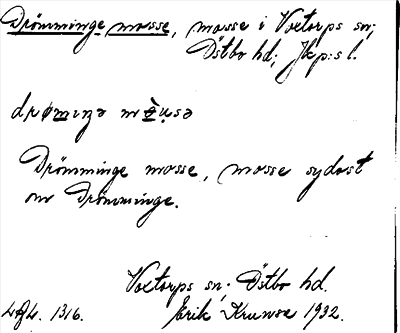 Drömminge mosse, mosse i Voxtorps sn;
Östbo hd; Jkp:s l.
Drömminge mosse, mosse sydost
om Drömminge.
Voxtorps sn; Östbo hd.
1316. Erik Krunse 1932.